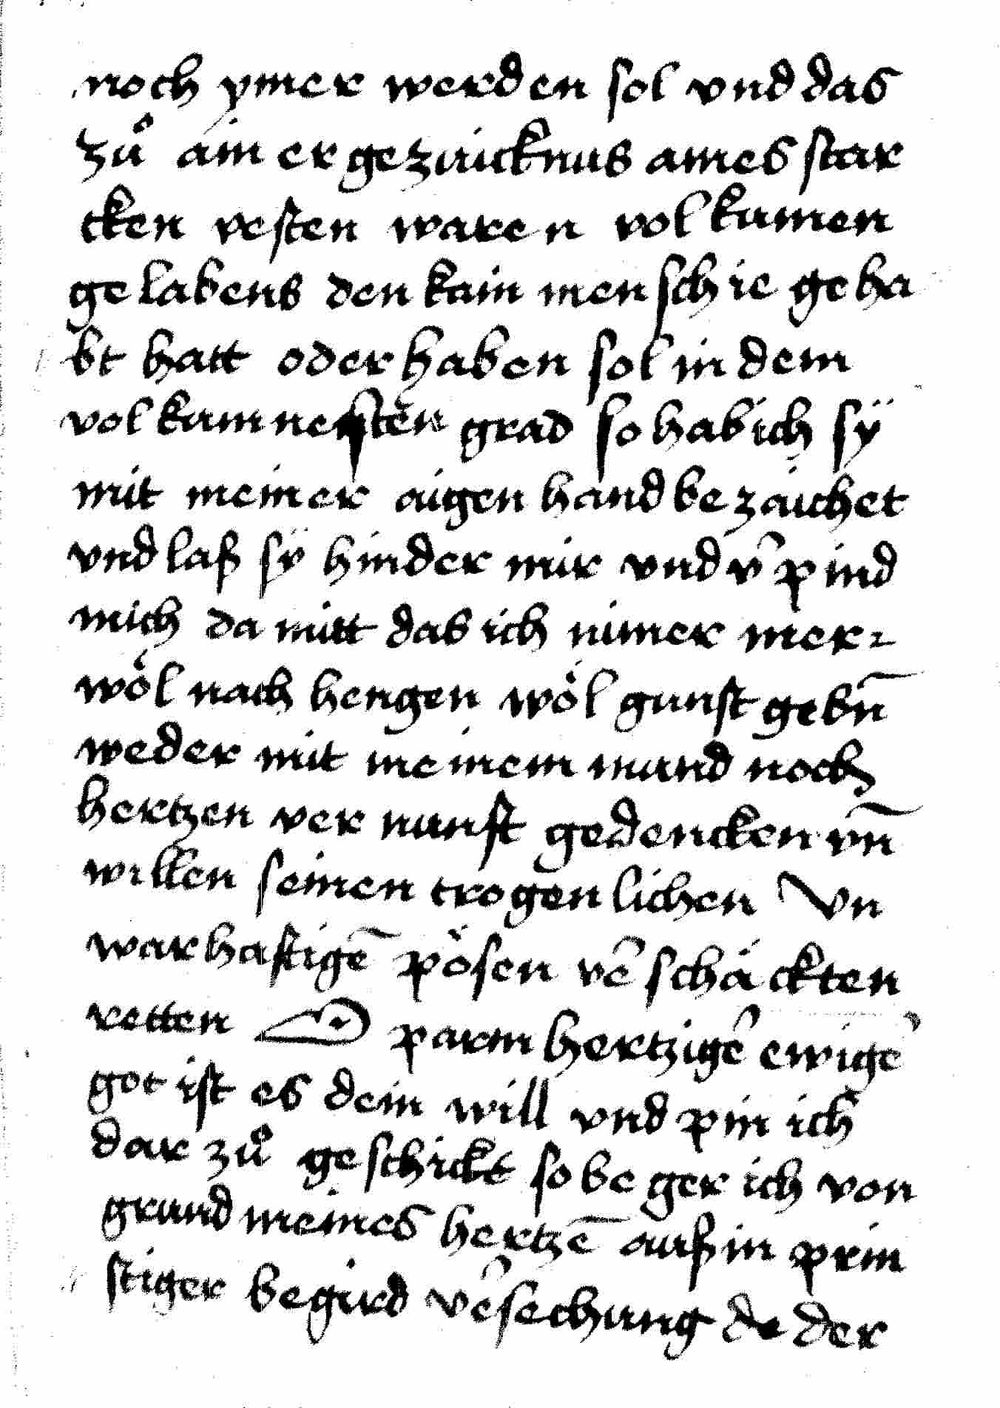 noch ymer werden sol vnd das
zuͦ ain er gezaicknus aines star
cken vesten waren vol kumen
gelabens den kain mensch ie geha
bt hatt oder haben sol in dem
vol kamnesten grad so hab ich sÿ
mit meiner aigen hand bezaichet
vnd laß sÿ hinder mir vnd v̾pind
mich da mitt das ich nimer mer
wöl nach hengen wöl gunst gebn̄
weder mit meinem mund noch
hertzen ver nunft gedencken vn̄
willen seinen trogenlichen Vn
warhaftigē pösen v̾schäckten
retten O parmhertzige̾ ewige̾
got ist es dein will vnd pin ich
dar zuͦ geschickt so beger ich von
grund meines hertzē auß in prin
stiger begird v̾sechung de der